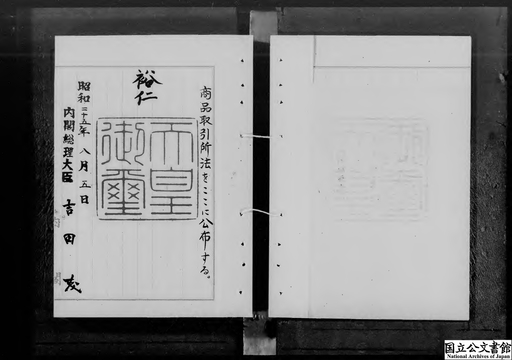 商品取引所法をここに公布する。
裕仁
天皇御璽
昭和二十五年八月五日
内閣総理大臣 吉田茂
国立公文書館
National Archives of Japan